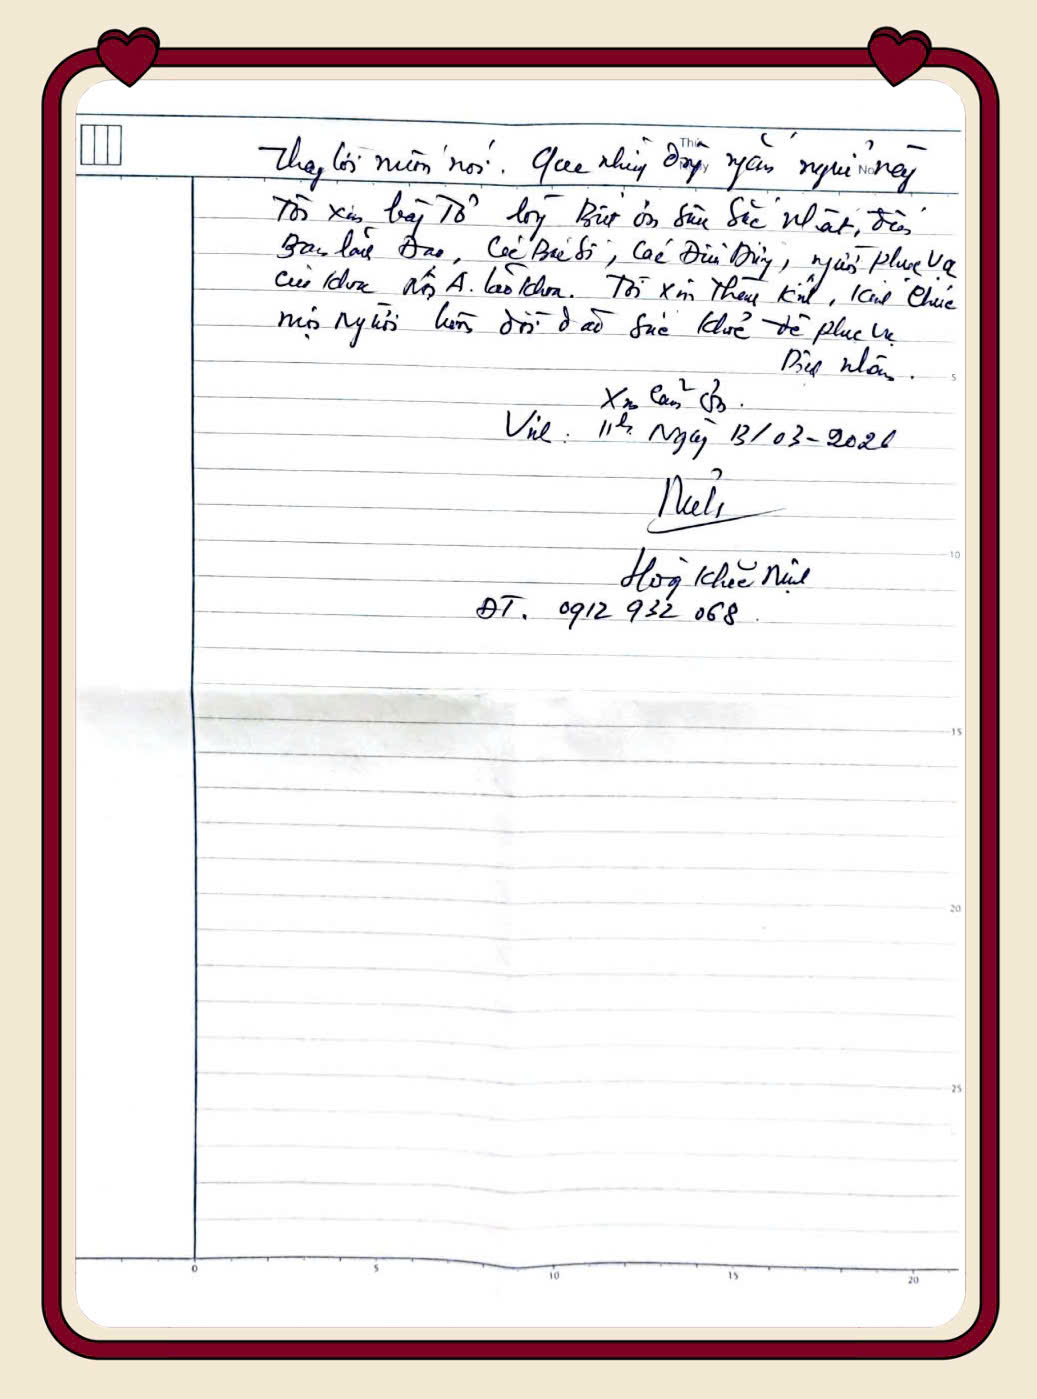 Thay lời muốn nói. Qua những dòng ngắn ngủi này
Tôi xin bày Tỏ lòng Biết ơn sâu sắc nhất, đến
Ban lãnh Đạo, Các Bác Sĩ, Các Điều Dưỡng, người phục vụ
của khoa Nội A. Lão khoa. Tôi xin Thêm kính, kính chúc
mọi Người luôn dồi dào sức khoẻ để phục vụ
Bệnh nhân.
Xin cảm ơn.
Vinh. 11h. Ngày 13/03-2026
Hoàng Khắc
ĐT. 0912 932 068
5
10
15
20
25
0 5 10 15 20